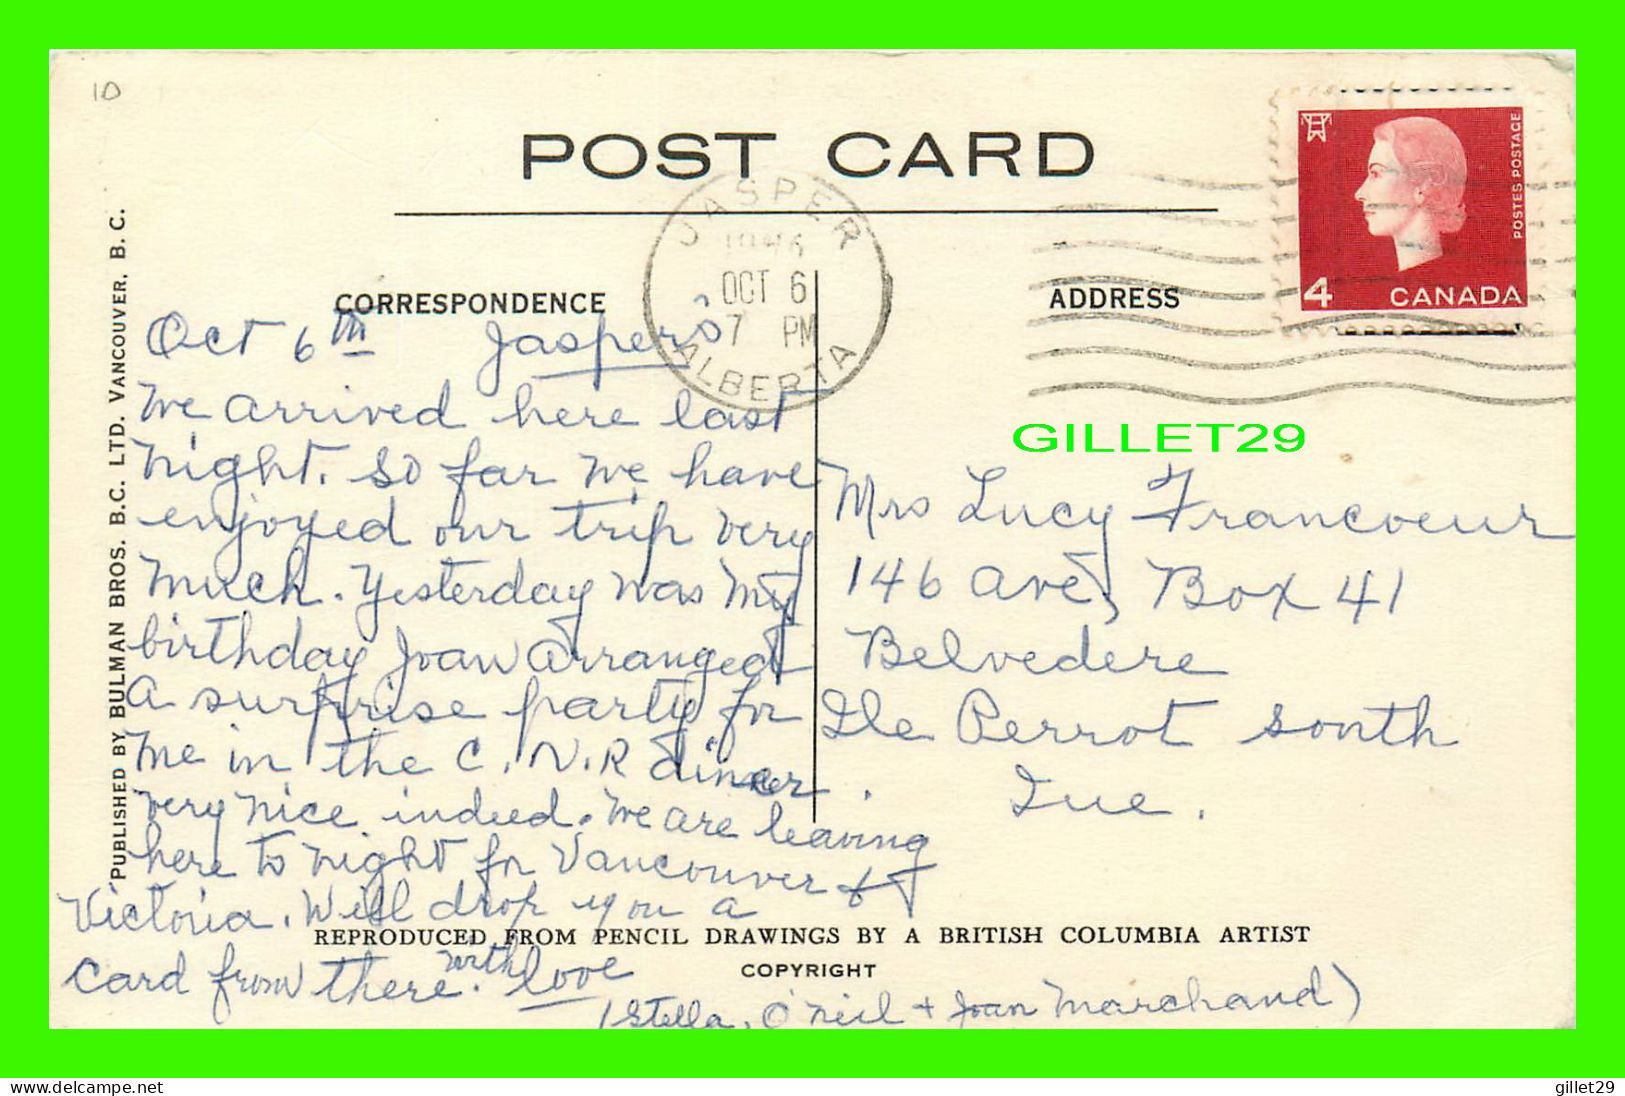 10
POST CARD
JASPER
OCT 6
7 PM
ALBERTA
POSTES POSTAGE
4 CANADA
CORRESPONDENCE
ADDRESS
PUBLISHED BY BULMAN BROS. B.C. LTD. VANCOUVER, B. C.
GILLET29
Oct 6th Jasper
We arrived here last
night. So far we have
enjoyed our trip very
much. Yesterday was my
birthday Joan arranged
a surprise party for
me in the C.N.R diner.
very nice indeed. We are leaving
here to night for Vancouver &
Victoria. Will drop you a
card from there. with love
(Stella, O'Neil + Joan Marchand)
Mrs Lucy Francoeur
146 ave, Box 41
Belvedere
Ile Perrot south
Que.
REPRODUCED FROM PENCIL DRAWINGS BY A BRITISH COLUMBIA ARTIST
COPYRIGHT
www.delcampe.net
gillet29